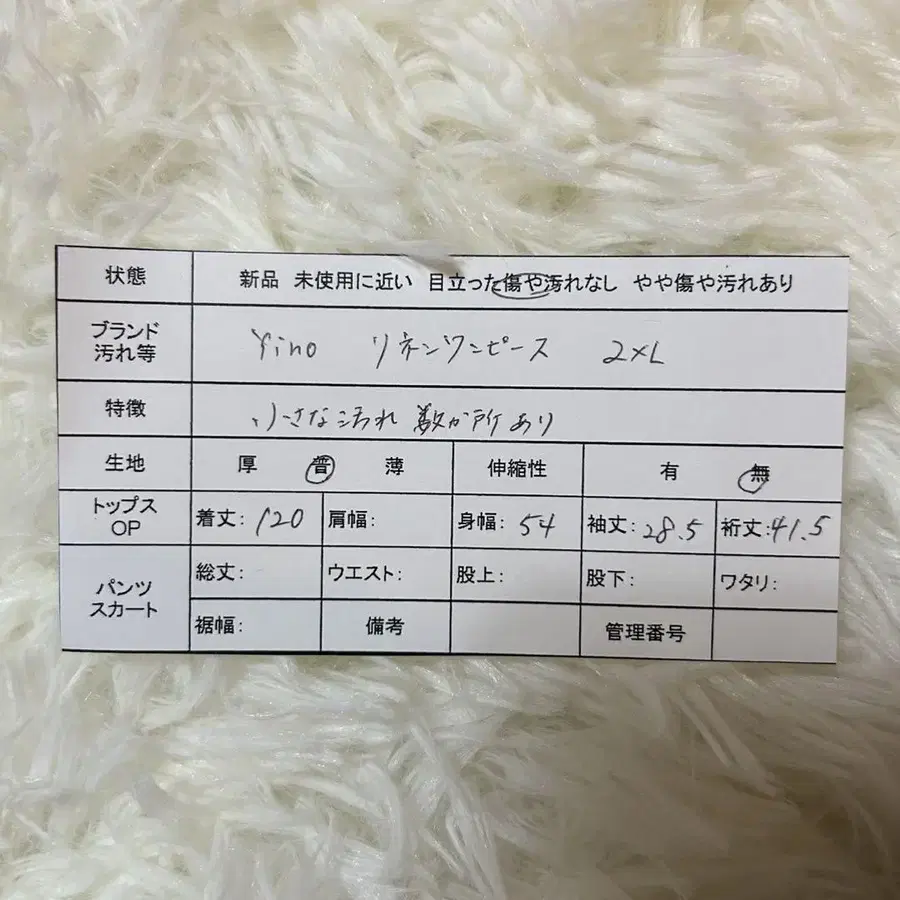 状態 新品 未使用に近い 目立った傷や汚れなし やや傷や汚れあり
ブランド
汚れ等 Yino リネンワンピース 2XL
特徴 小さな汚れ 数か所あり
生地 厚 普 薄 伸縮性 有 無
トップス
OP 着丈: 120 肩幅: 身幅: 54 袖丈: 28.5 裄丈: 41.5
パンツ
スカート 総丈: ウエスト: 股上: 股下: ワタリ:
裾幅: 備考 管理番号